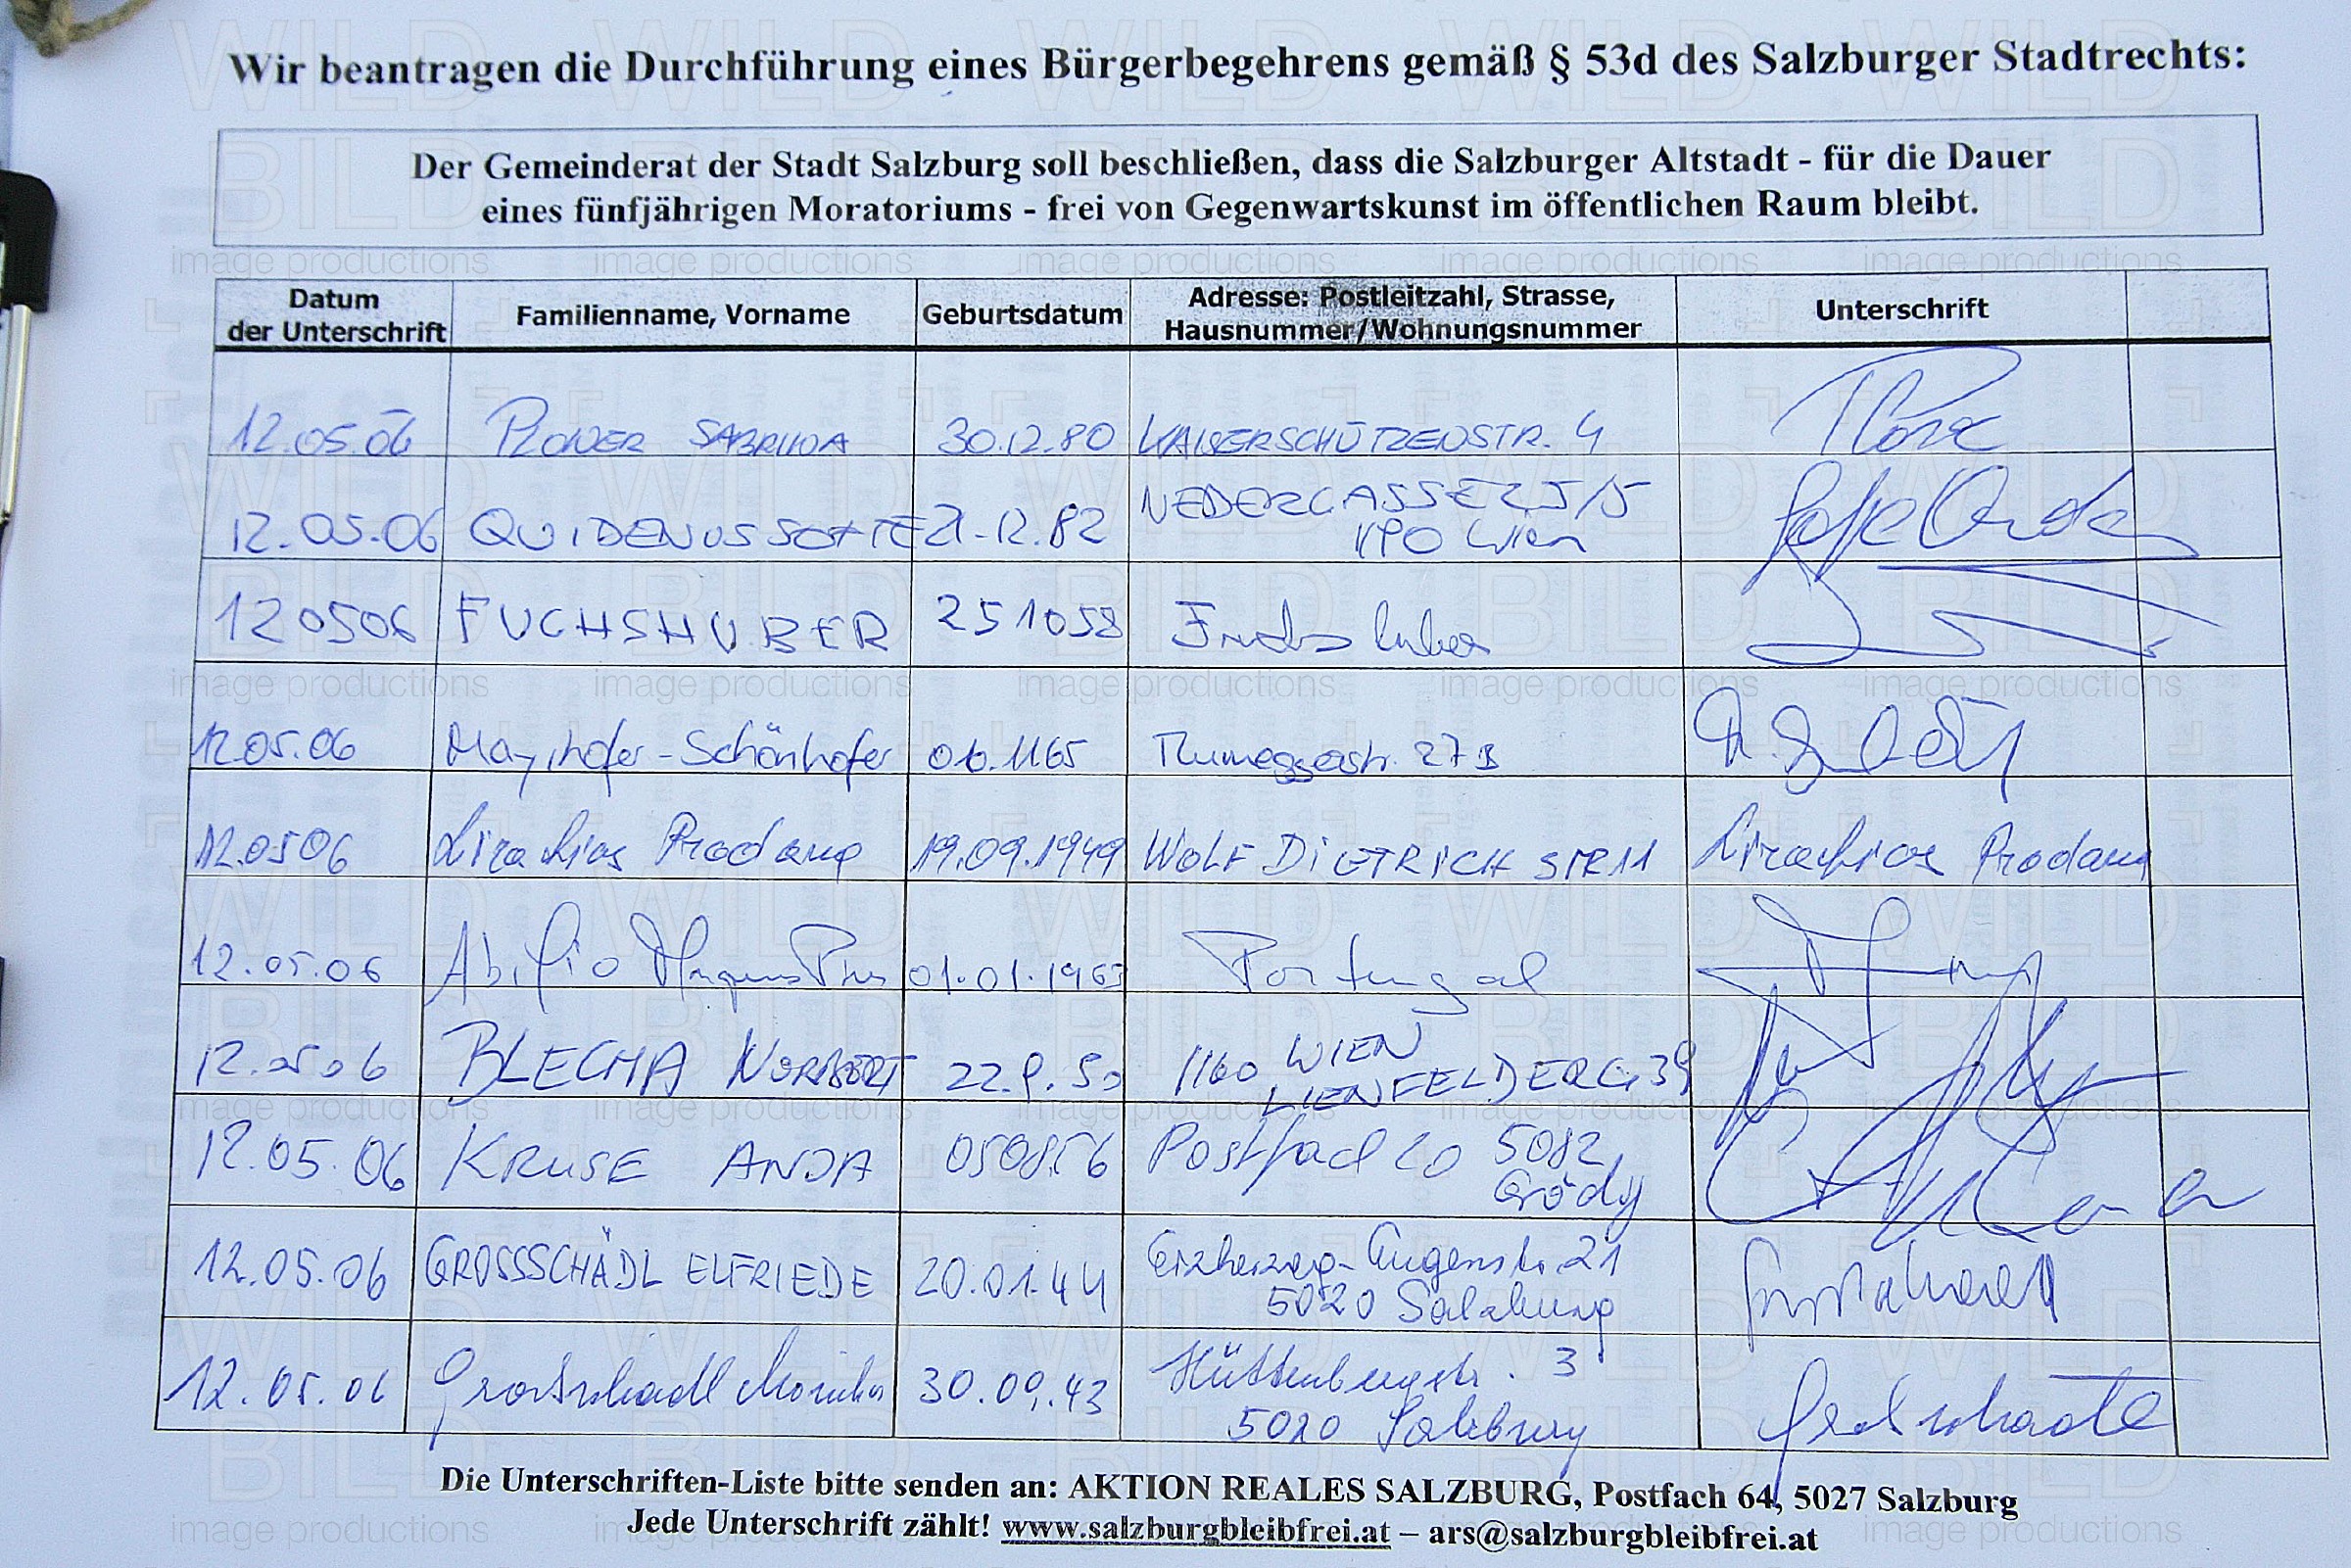 Wir beantragen die Durchführung eines Bürgerbegehrens gemäß § 53d des Salzburger Stadtrechts:
Der Gemeinderat der Stadt Salzburg soll beschließen, dass die Salzburger Altstadt - für die Dauer
eines fünfjährigen Moratoriums - frei von Gegenwartskunst im öffentlichen Raum bleibt.
Datum der Unterschrift Familienname, Vorname Geburtsdatum Adresse: Postleitzahl, Strasse, Hausnummer/Wohnungsnummer Unterschrift
12.05.06 PLONER SABRINA 30.12.80 KAISERSCHÜTZENSTR. 4
12.05.06 QUIDENUS 21.12.82 Wien
120506 FUCHSHUBER 251058 Fuchshuber
12.05.06 Mayrhofer-Schönhofer
12.0506 Prodang 19.09.1949 WOLF DIETRICH STR 11 Prodang
12.05.06 Abilio 01.01.1963 Portugal
12.05 06 BLECHA NORBERT 1160 WIEN
LIENFELDERG 39
12.05.06 KRUSE ANJA 5082
Grödig
12.05.06 GROSSSCHÄDL ELFRIEDE 20.01.44 Erzherzog-Eugenstr. 21
5020 Salzburg
12.05.06 Grossschadl Monika 30.09.43 Hüttenbergstr. 3
5020 Salzburg
Die Unterschriften-Liste bitte senden an: AKTION REALES SALZBURG, Postfach 64, 5027 Salzburg
Jede Unterschrift zählt! www.salzburgbleibfrei.at – ars@salzburgbleibfrei.at
WILD
BILD
image productions